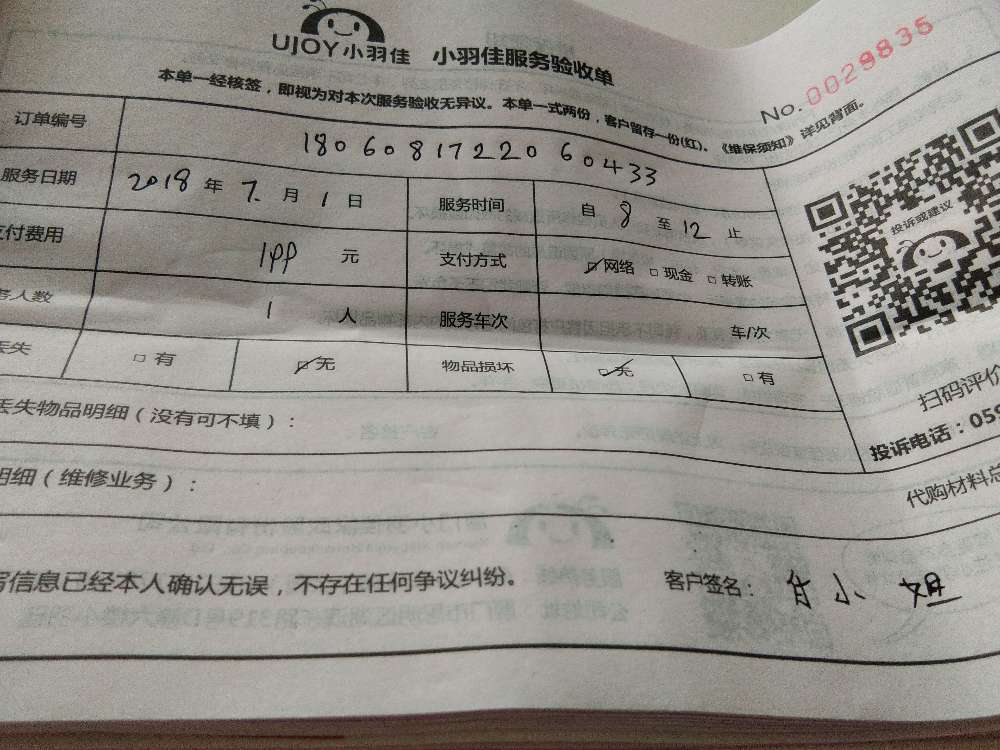 UJOY小羽佳 小羽佳服务验收单
No. 0029835
本单一经核签，即视为对本次服务验收无异议。本单一式两份，客户留存一份(红)。《维保须知》详见背面。
订单编号 1806081722060433
服务日期 2018 年 7 月 1 日 服务时间 自 8 至 12 止
支付费用 199 元 支付方式 网络 □现金 □转账
务人数 1 人 服务车次 车/次
丢失 □有 无 物品损坏 无 □有
丢失物品明细（没有可不填）：
明细（维修业务）：
投诉或建议
扫码评价
投诉电话：059
代购材料总
写信息已经本人确认无误，不存在任何争议纠纷。 客户签名： 甘小姐